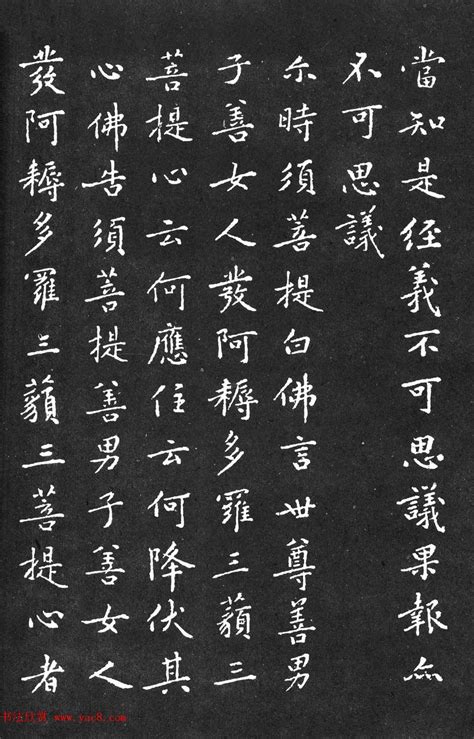 當知是經義不可思議果報亦
不可思議
尒時須菩提白佛言世尊善男
子善女人發阿耨多羅三藐三
菩提心云何應住云何降伏其
心佛告須菩提善男子善女人
發阿耨多羅三藐三菩提心者
书法欣赏 www.yac8.com